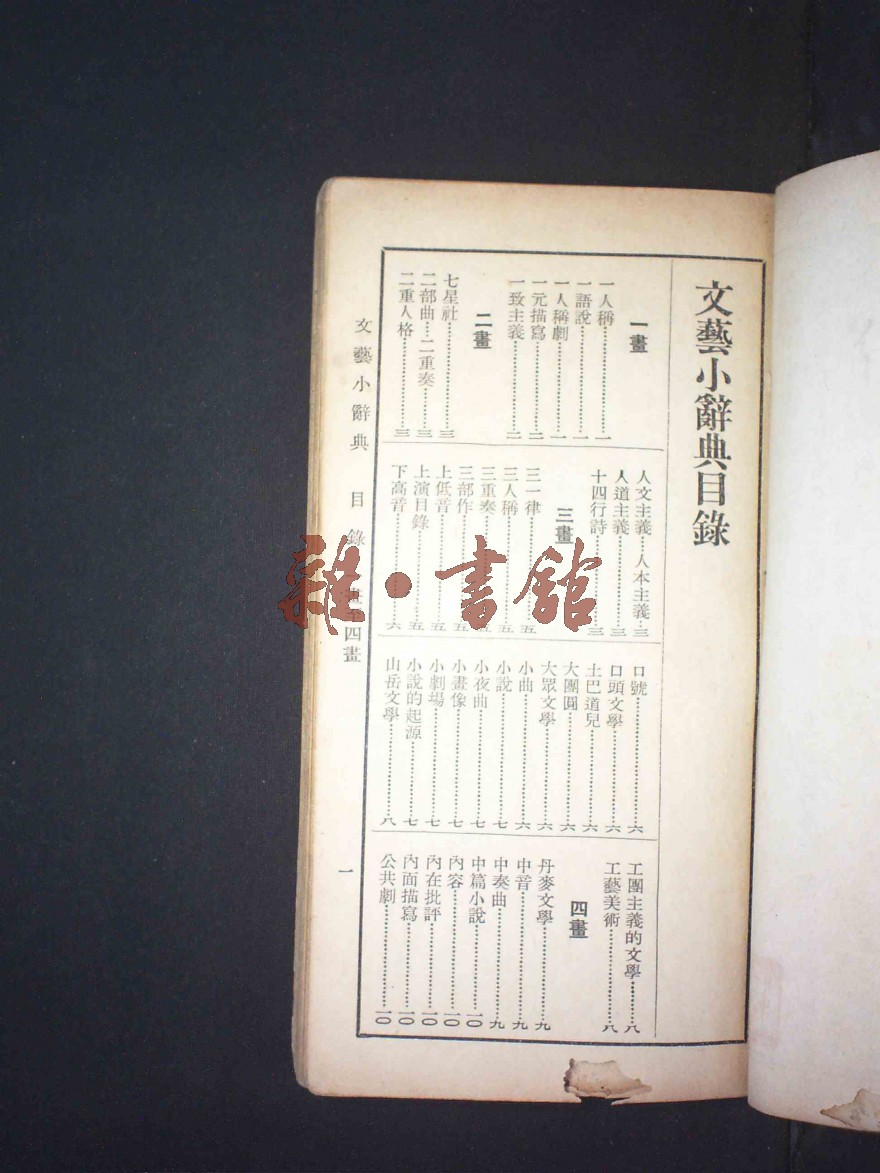 文藝小辭典目錄
一畫
一人稱…一
一語說…一
一人稱劇…一
一元描寫…二
一致主義…二
二畫
七星社…三
二部曲…二重奏…三
二重人格…三
人文主義…人本主義…三
人道主義…三
十四行詩…三
三畫
三一律…五
三人稱…五
三重奏…五
三部作…五
上低音…五
上演目錄…五
下高音…六
口號…六
口頭文學…六
土巴道兒…六
大團圓…六
大眾文學…六
小曲…六
小說…七
小夜曲…七
小畫像…七
小劇場…七
小說的起源…七
山岳文學…八
工團主義的文學…八
工藝美術…八
四畫
丹麥文學…九
中音…九
中奏曲…九
中篇小說…一〇
內容…一〇
內在批評…一〇
內面描寫…一〇
公共劇…一〇
文藝小辭典 目錄 畫至四畫
一
雜·書館